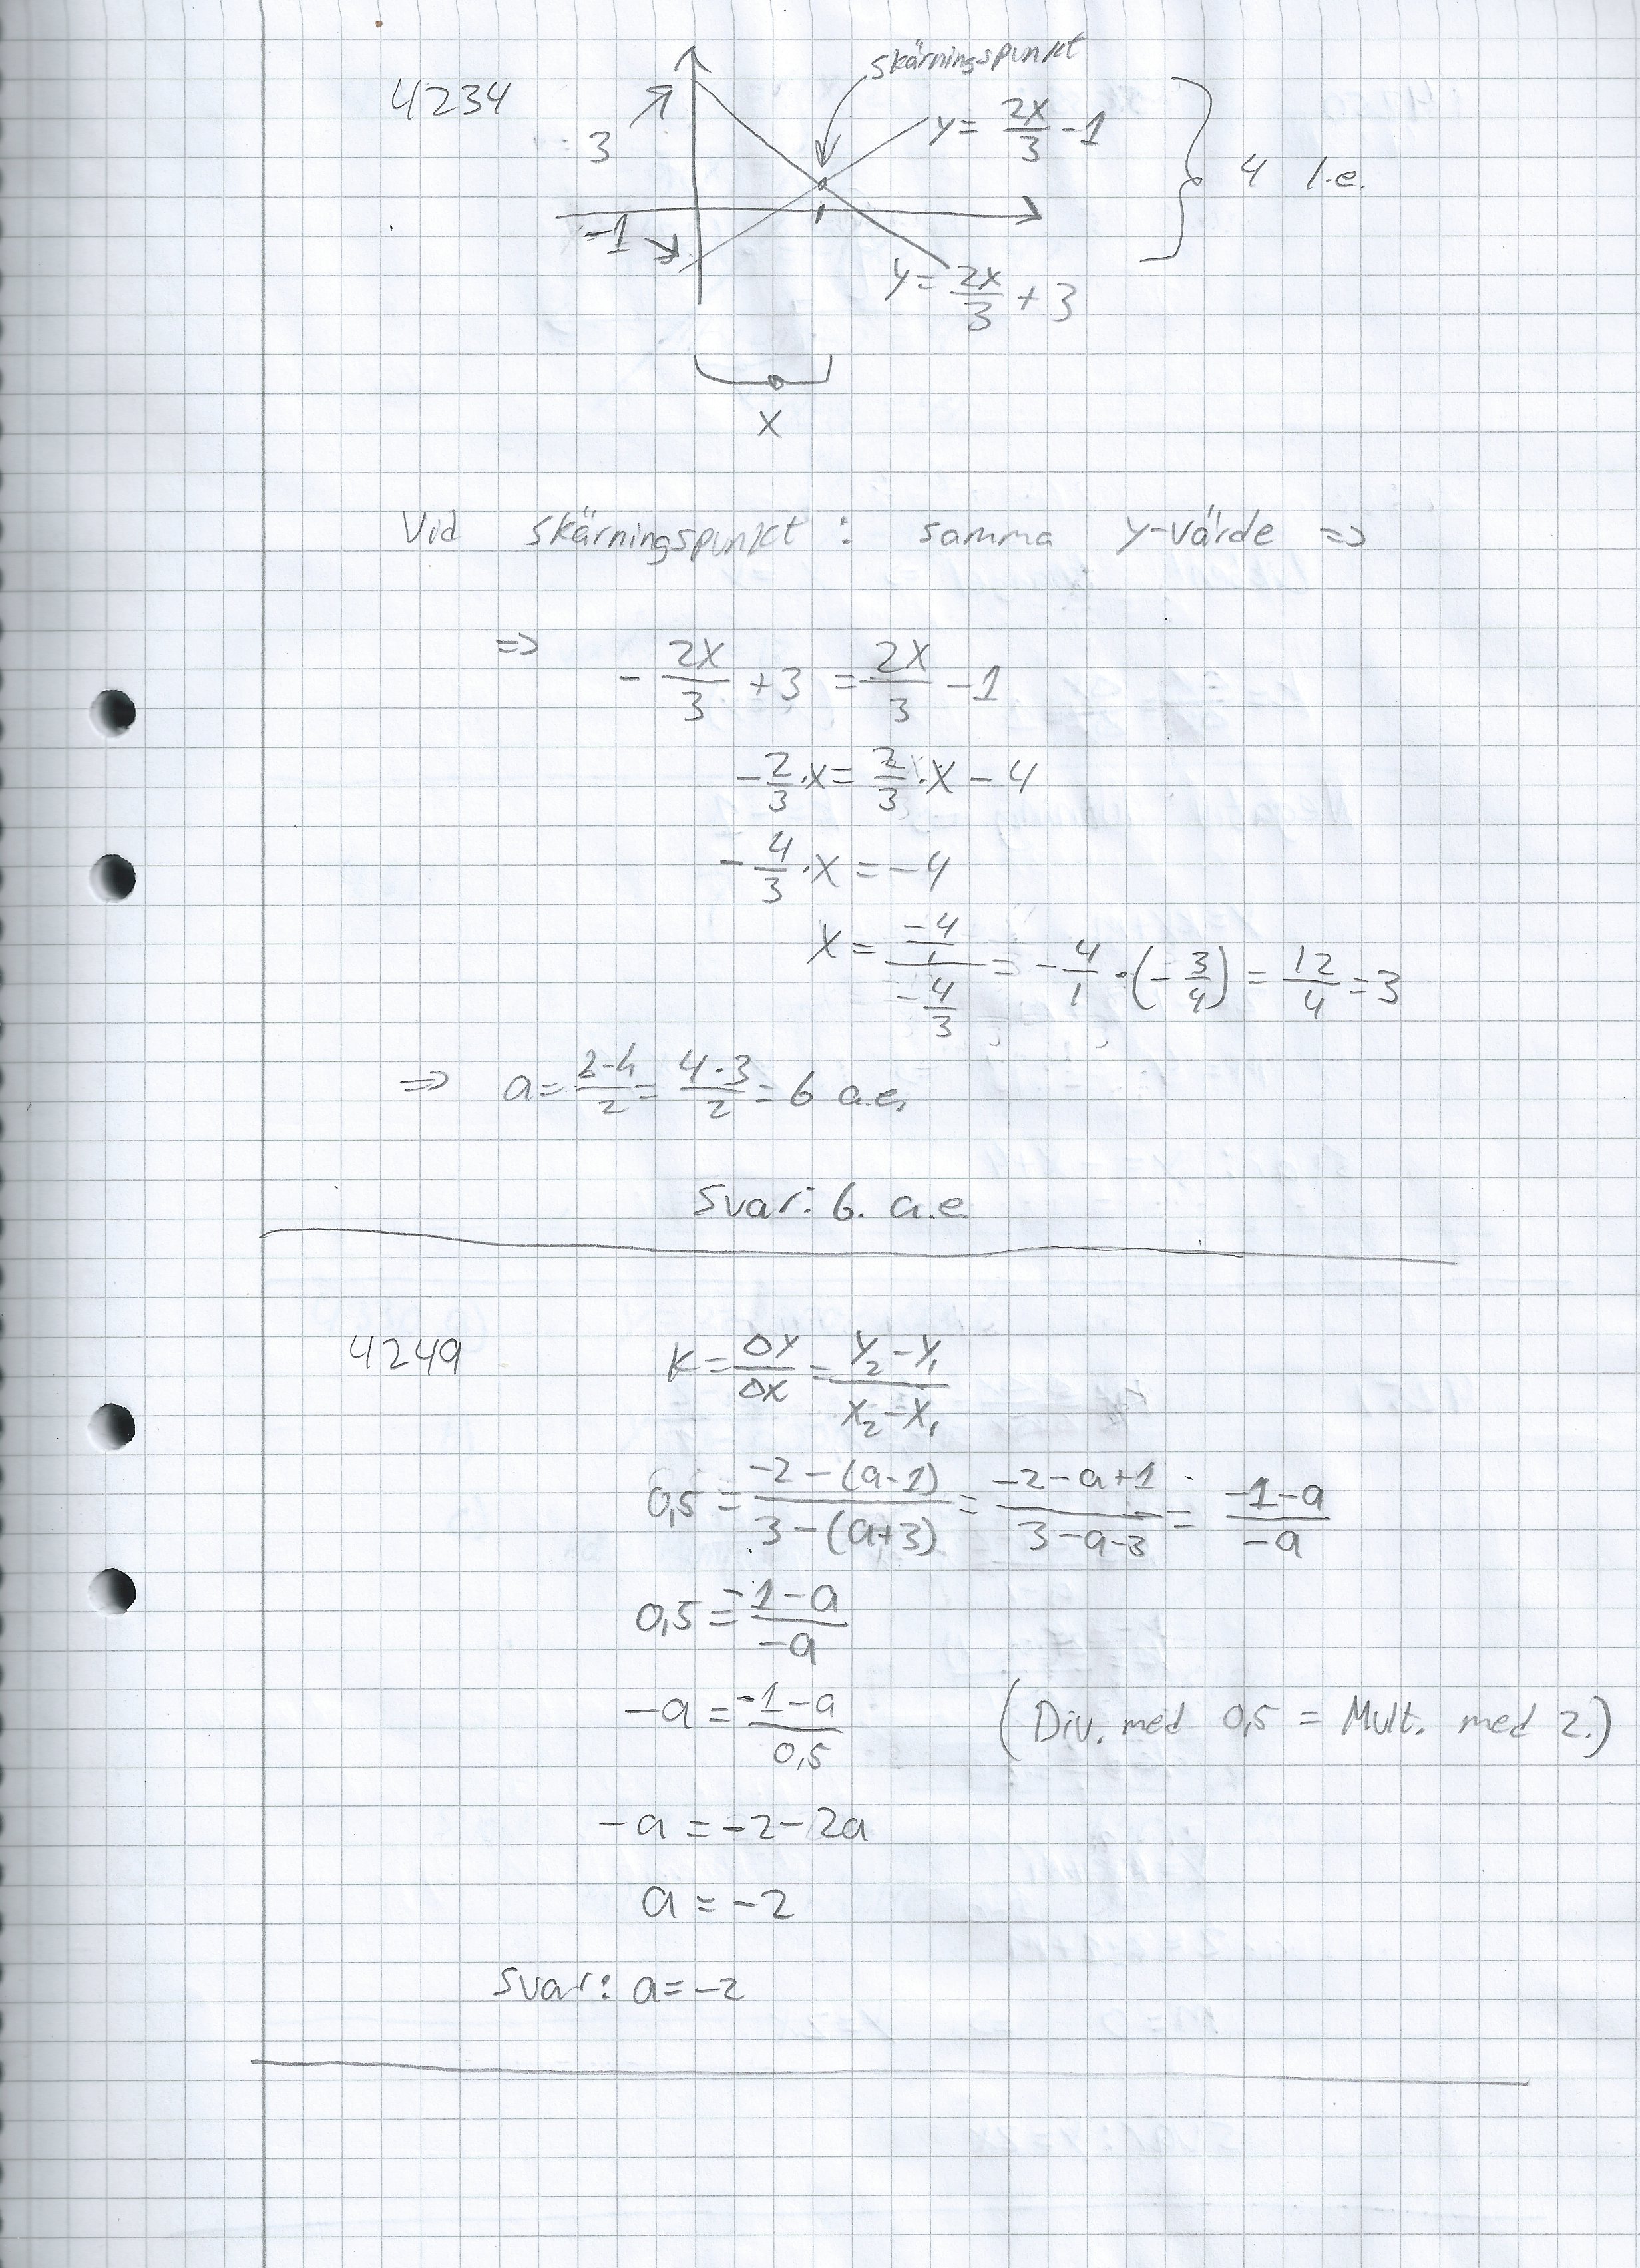 4234
skärningspunkt
3
y = 2x/3 - 1
4 l.e.
-1
y = 2x/3 + 3
x
Vid skärningspunkt : samma y-värde =>
=> - 2x/3 + 3 = 2x/3 - 1
- 2/3 · x = 2/3 · x - 4
- 4/3 · x = -4
x = (-4/1)/(-4/3) = - 4/1 · (- 3/4) = 12/4 = 3
=> a = b·h/2 = 4·3/2 = 6 a.e.
Svar: 6. a.e.
4249
K = Δy/Δx = (y₂ - y₁)/(x₂ - x₁)
0,5 = (-2 - (a-1))/(3 - (a+3)) = (-2 - a + 1)/(3 - a - 3) = (-1 - a)/(-a)
0,5 = (-1 - a)/(-a)
-a = (-1 - a)/0,5 (Div. med 0,5 = Mult. med 2.)
-a = -2 - 2a
a = -2
Svar: a = -2